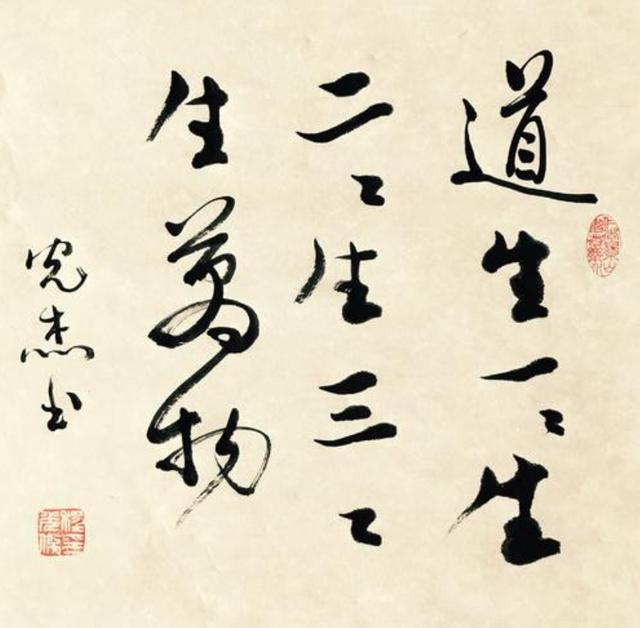 道生一〻生
二〻生三〻
生萬物
杰书